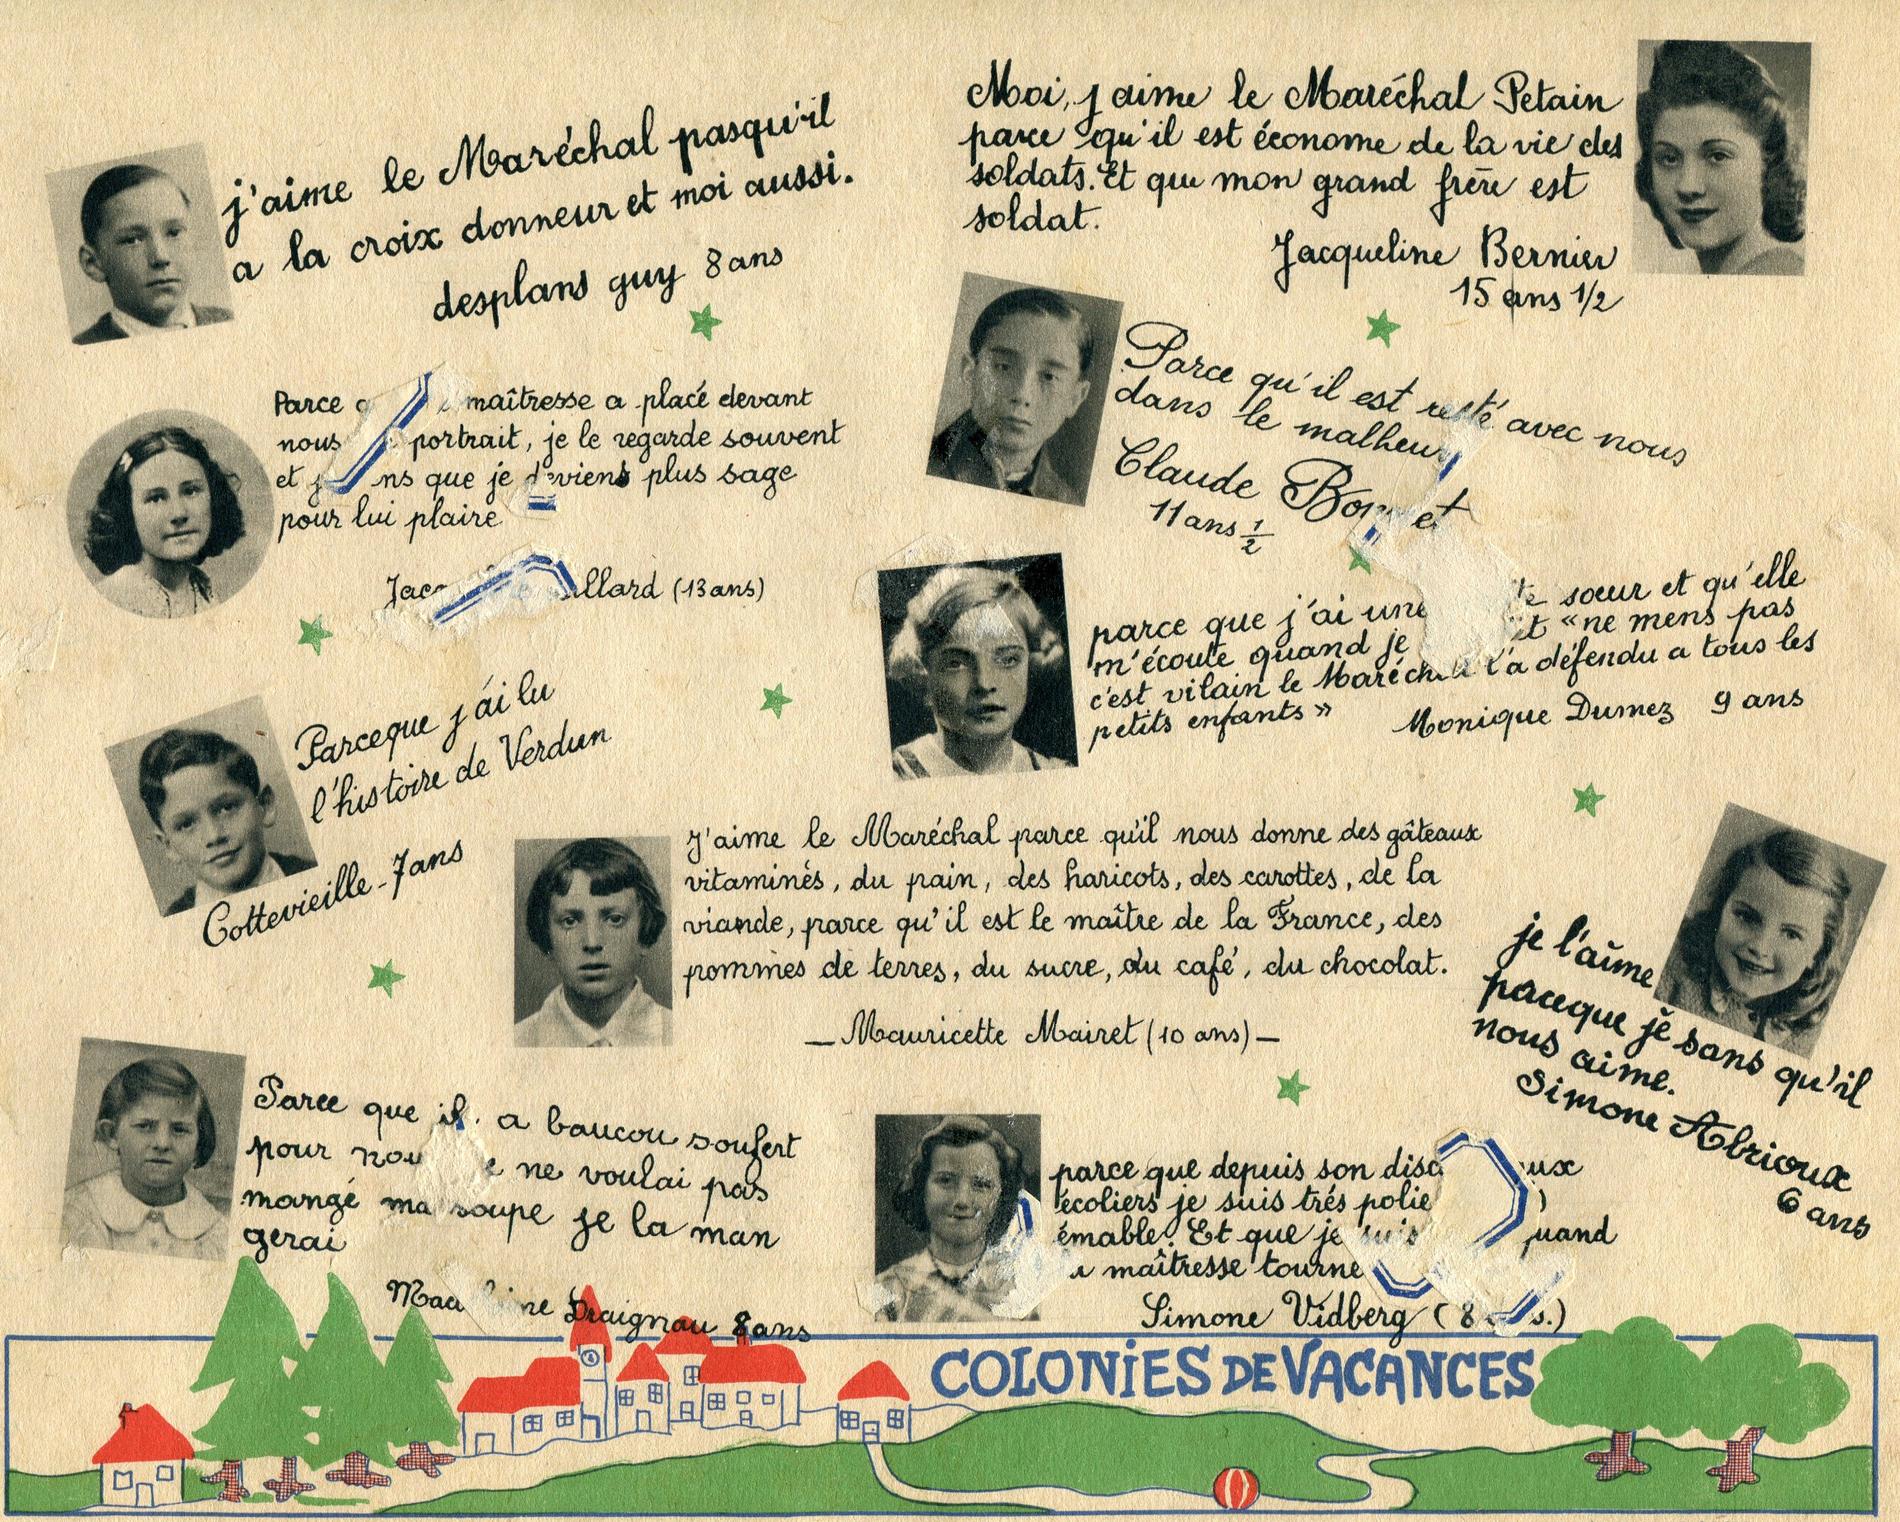 j'aime le Maréchal pasqu'il
a la croix donneur et moi aussi.
desplans guy 8 ans
Moi, j aime le Maréchal Petain
parce qu'il est économe de la vie des
soldats. Et que mon grand frère est
soldat.
Jacqueline Bernier
15 ans 1/2
Parce maîtresse a placé devant
nous portrait, je le regarde souvent
et que je deviens plus sage
pour lui plaire
(13 ans)
Parce qu'il est resté avec nous
dans le malheur
Claude
11 ans 1/2
parce que j'ai une sœur et qu'elle
m'écoute quand je "ne mens pas
c'est vilain le Maréchal l'a défendu a tous les
petits enfants"
Monique Dumez 9 ans
Parceque j'ai lu
l'histoire de Verdun
Cottevieille - 7 ans
J'aime le Maréchal parce qu'il nous donne des gâteaux
vitaminés, du pain, des haricots, des carottes, de la
viande, parce qu'il est le maître de la France, des
pommes de terres, du sucre, du café, du chocolat.
— Mauricette Mairet (10 ans) —
je l'aime
paceque je sans qu'il
nous aime.
Simone Abrioux
6 ans
Parce que il a baucou soufert
pour ne voulai pas
mangé ma soupe je la man
gerai
Draignau 8 ans
parce que depuis son
écoliers je suis trés polie
émable. Et que je suis quand
maîtresse tourne
Simone Vidberg (8
COLONIES DE VACANCES